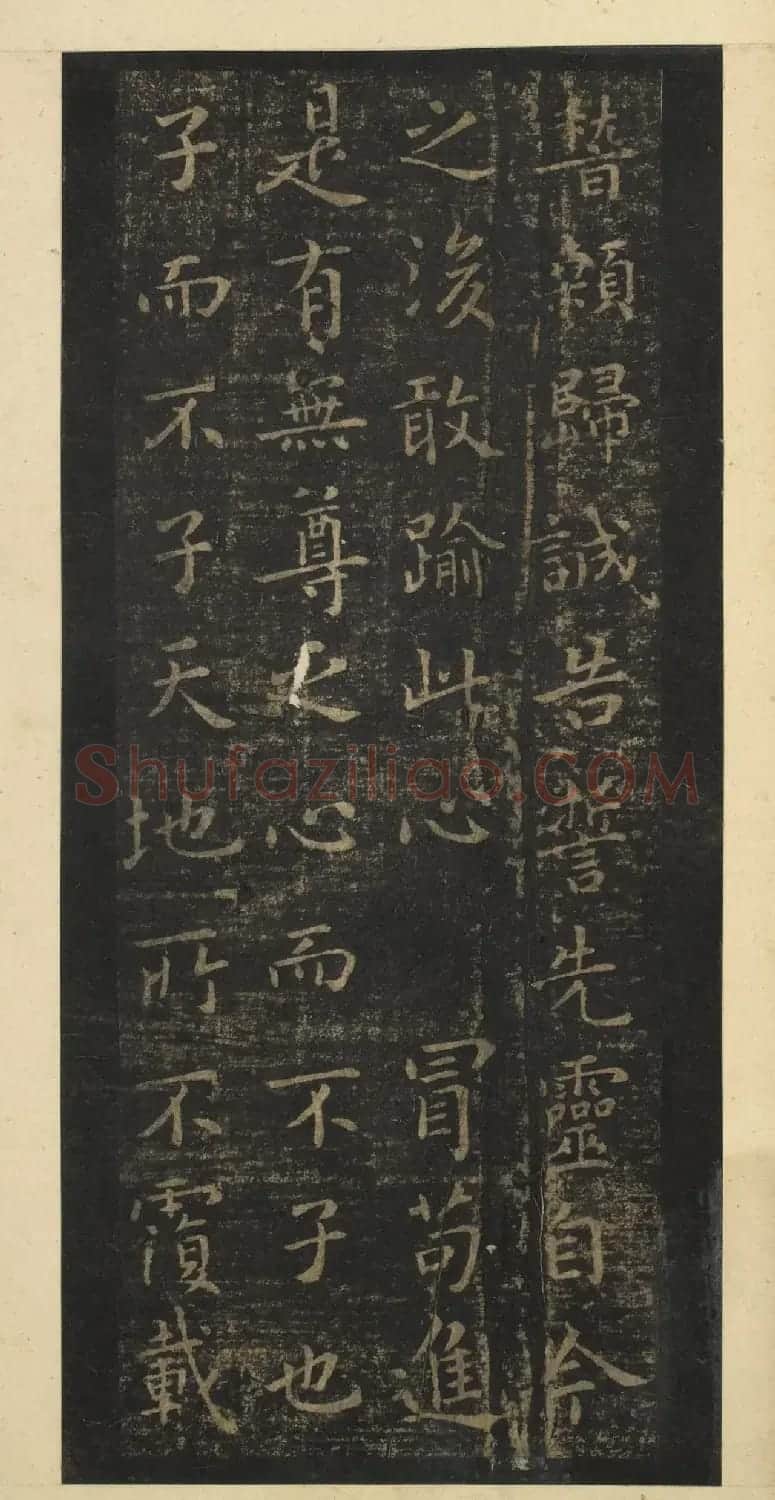 稽顙歸誠告誓先靈自今
之後敢踰此心冒苟進
是有無尊之心而不子也
子而不子天地所不覆載
Shufaziliao.COM